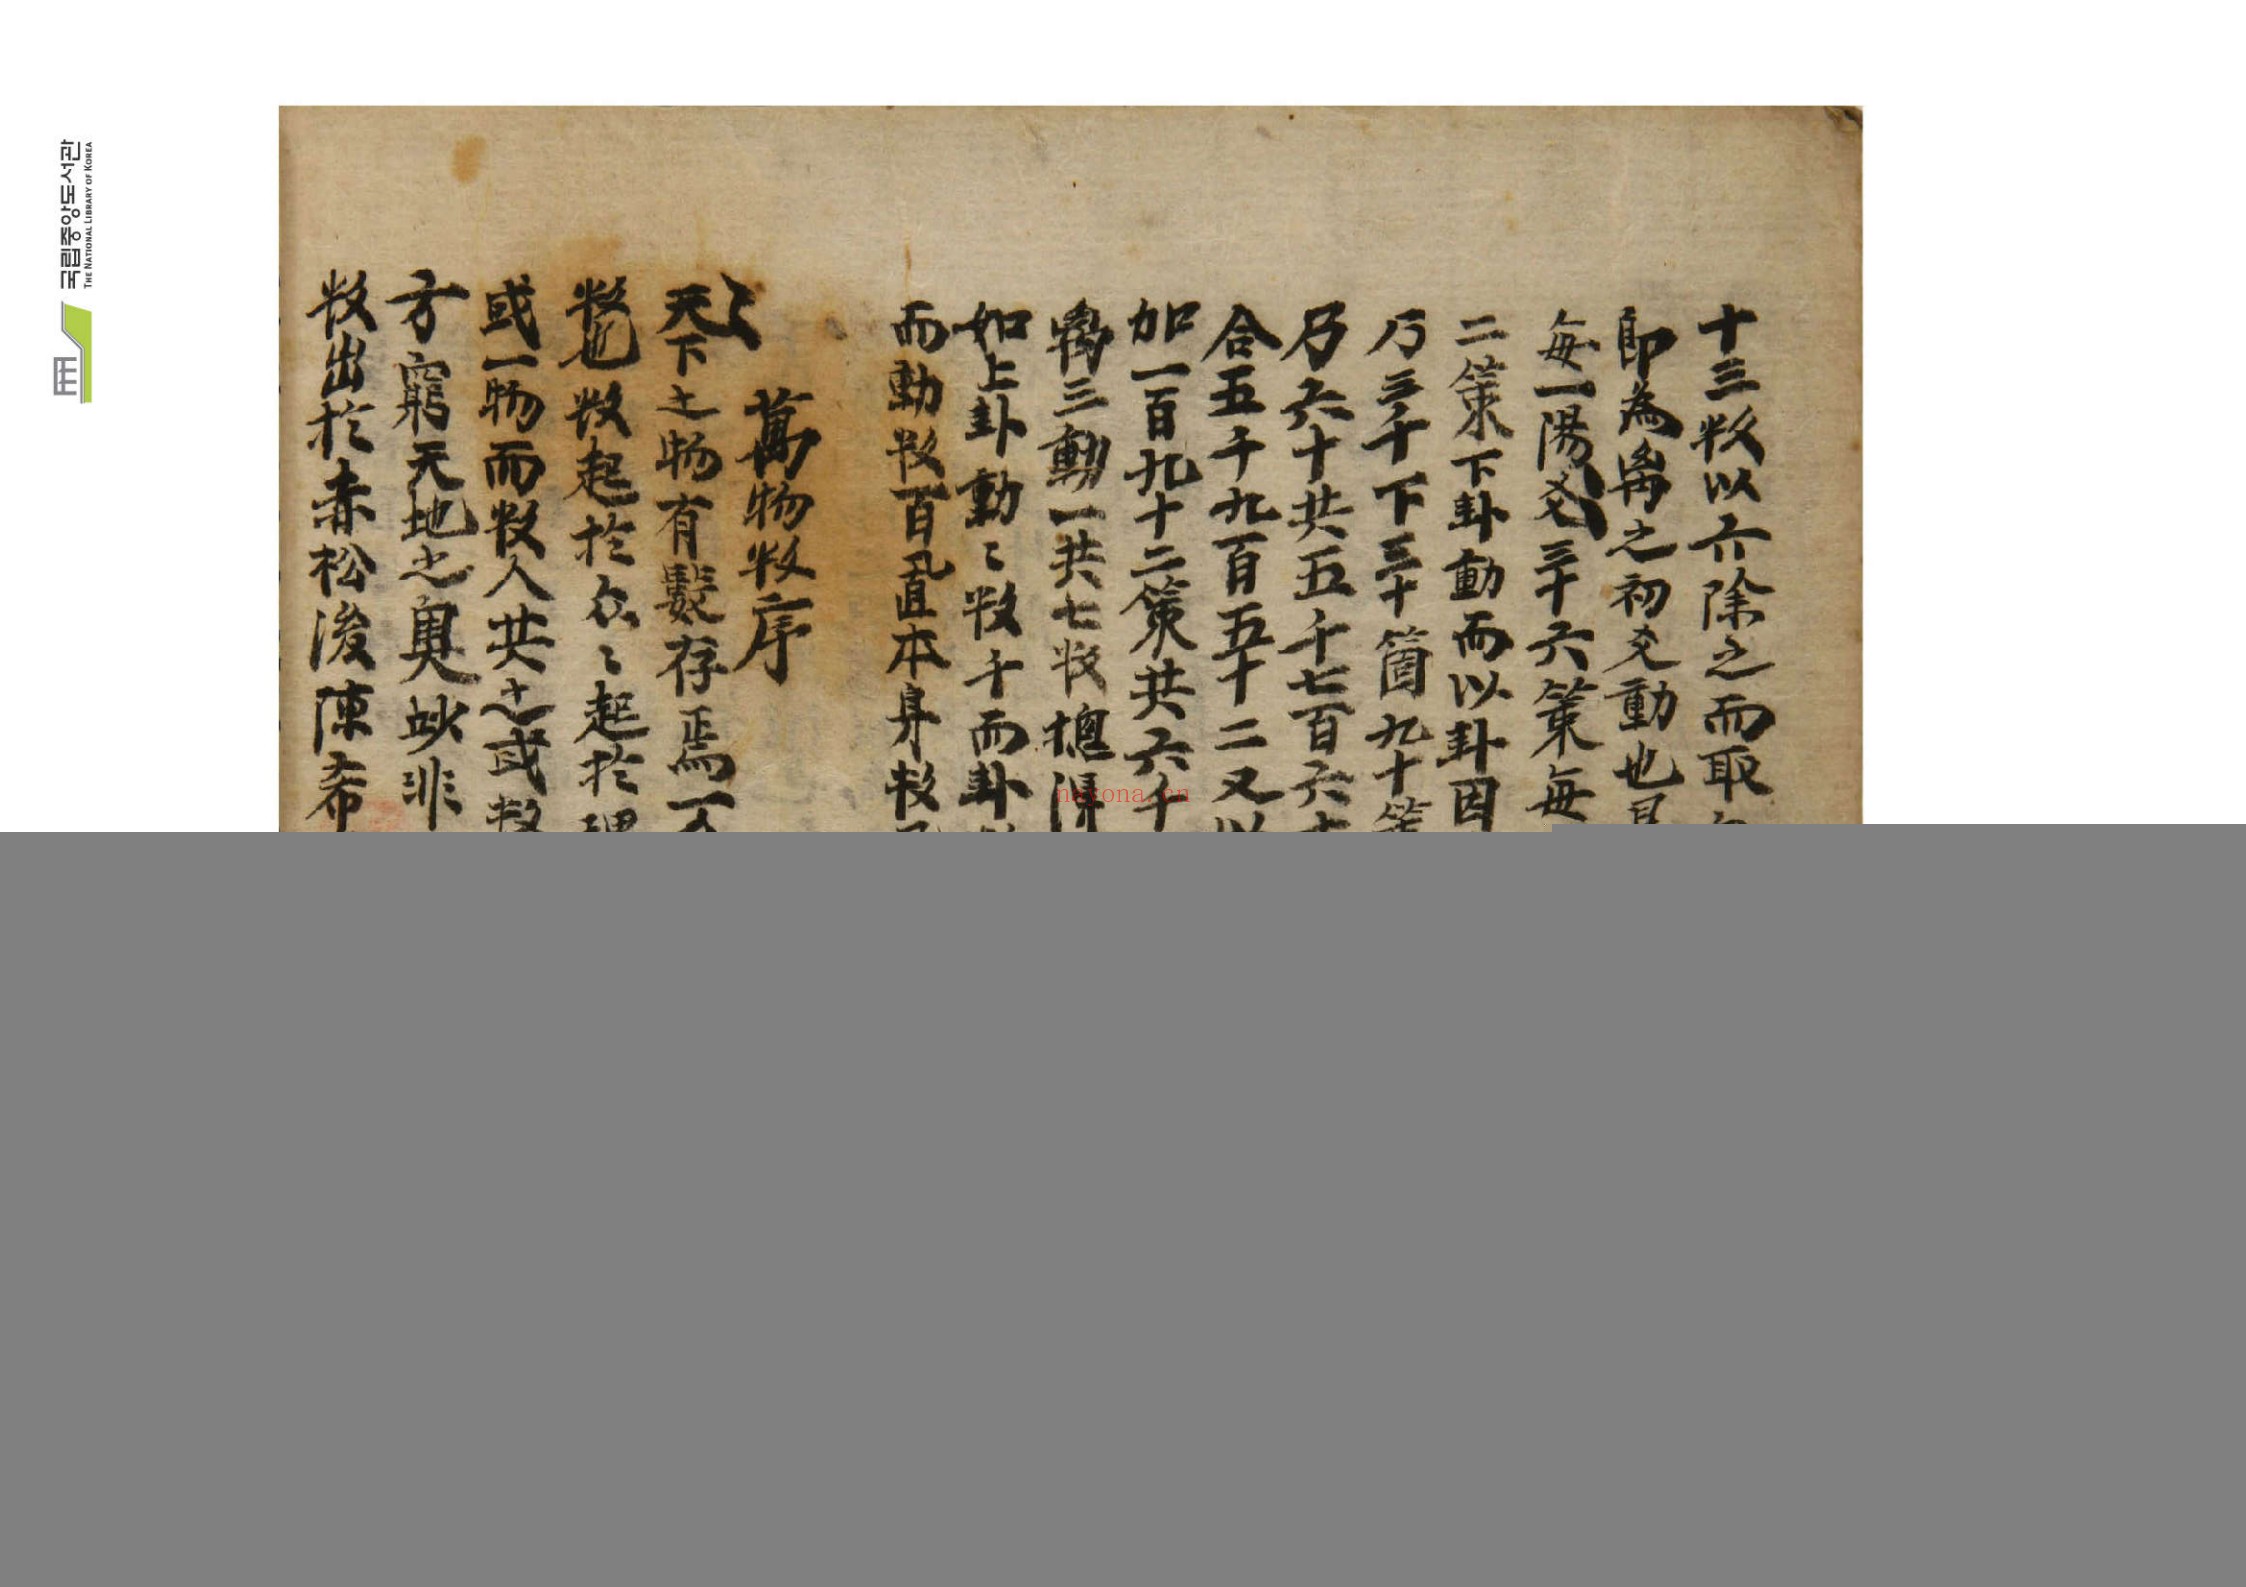 十三数以六除之而取
即為嵛之初爻動也
每一陽爻三十六策每
二策下卦動而以卦因
乃三千下三十箇九十策
乃六十共五千七百六十
合五千九百五十二又以
加一百九十二策共六千
三動一共七数摠得
如上卦動〻数千而卦
而動数百乱直本身数
萬物数序
天下之物有數存焉一
数也数起於众〻起於理
或一物而数人共之或数
方窮天地之奧妙非
数出於赤松浚陳希
국립중앙도서관
THE NATIONAL LIBRARY OF KOREA
nayona.cn